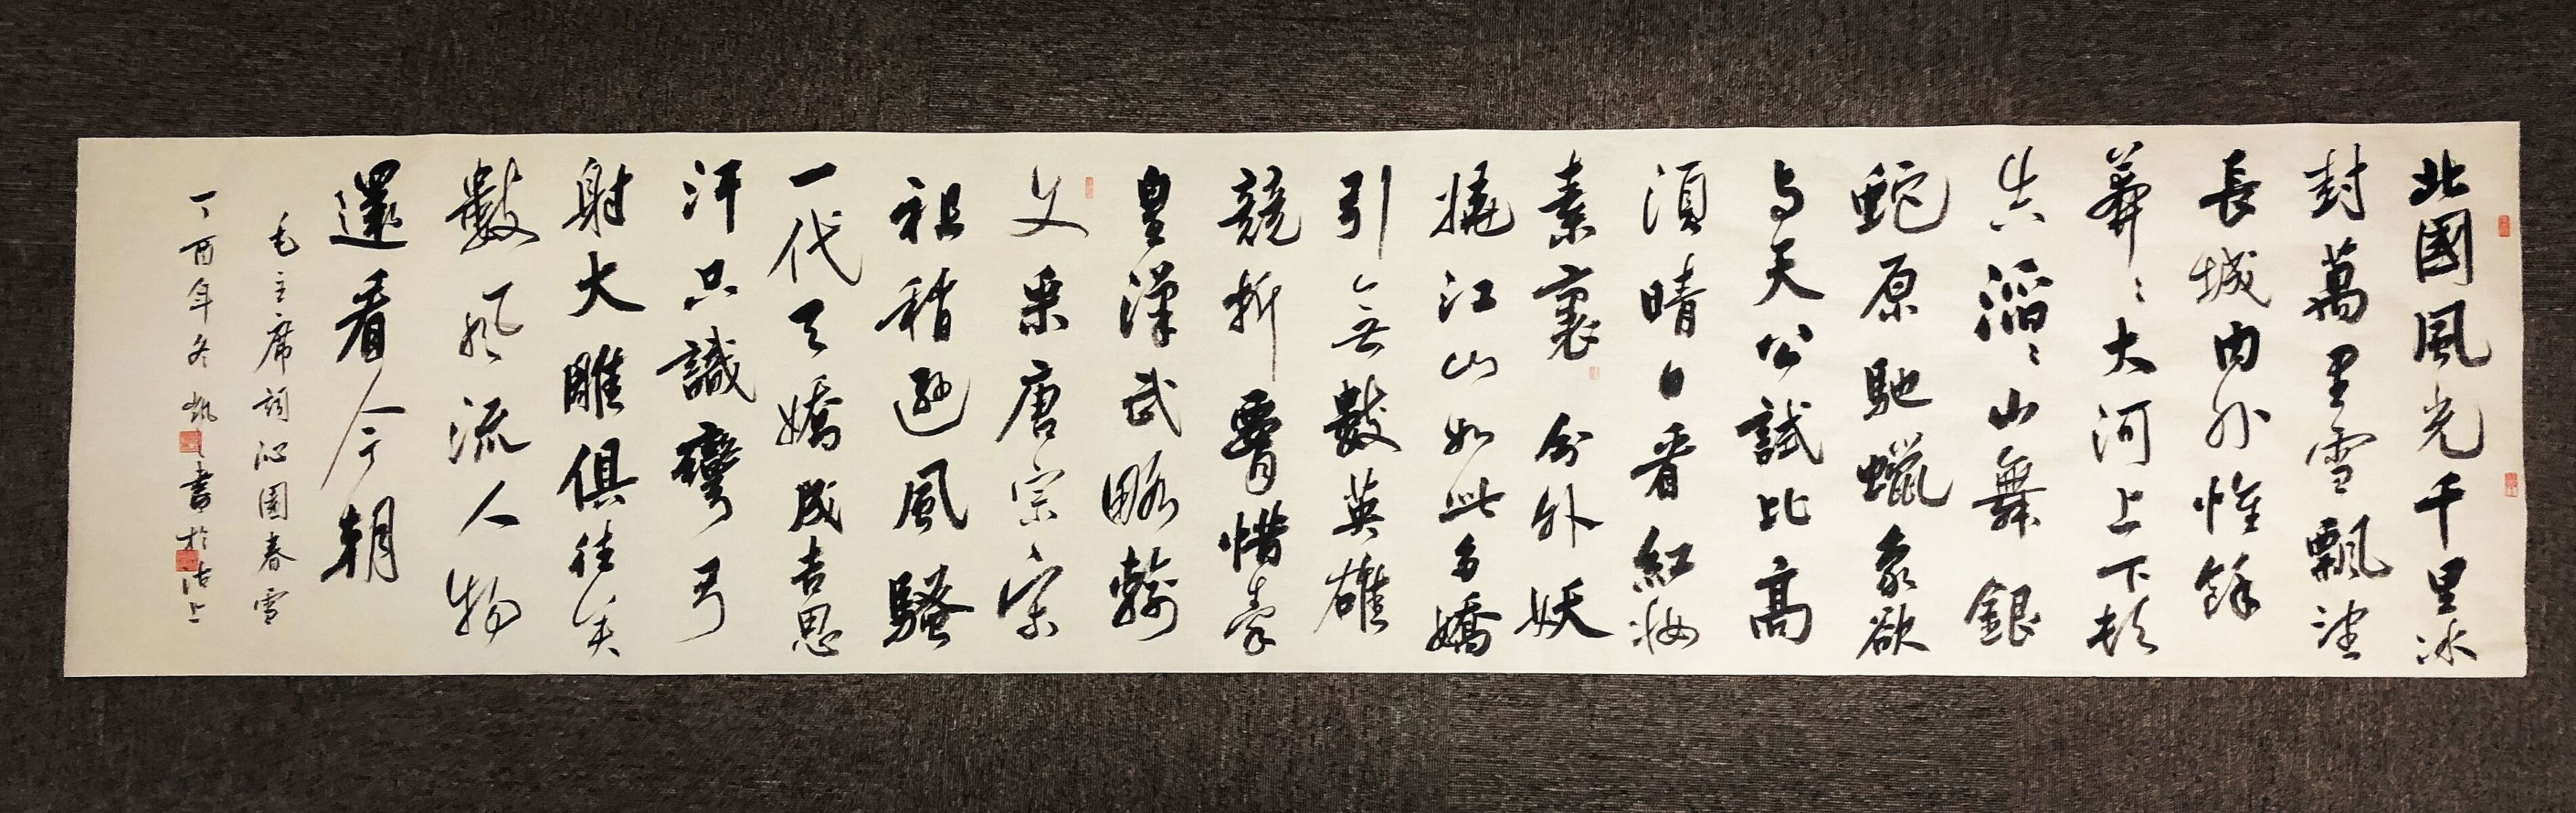 北國風光千里冰
封萬里雪飄望
長城内外惟餘
莽〻大河上下頓
失滔〻山舞銀
蛇原馳蠟象欲
与天公試比高
須晴日看紅妝
素裹分外妖
嬈江山如此多嬌
引無數英雄
競折腰惜秦
皇漢武略輸
文采唐宗宋
祖稍遜風騷
一代天嬌成吉思
汗只識彎弓
射大雕俱往矣
數風流人物
還看今朝
毛主席詞沁園春雪
丁酉年冬凱書於沽上